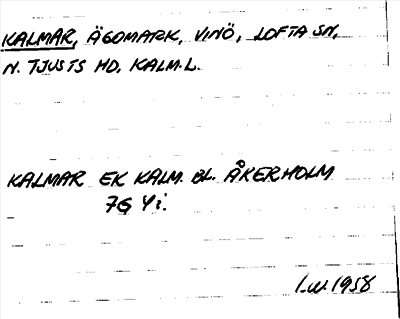 KALMAR, ÄGOMARK, VINÖ, LOFTA SN,
N. TJUSTS HD, KALM.L.
KALMAR EK KALM. BL. ÅKERHOLM
7G 4i.
I.W. 1958